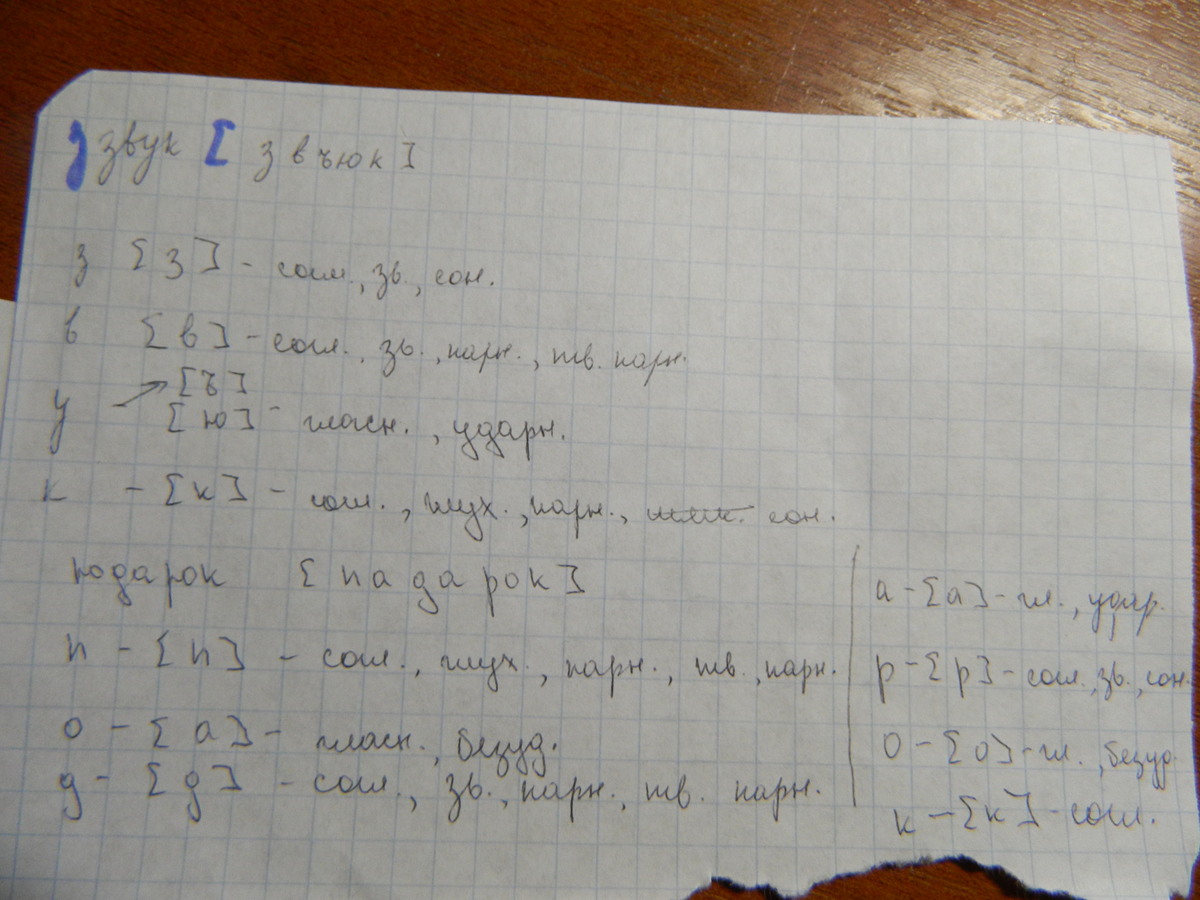 з звук [ звъюк ]
з [з] - согл., зв., сон.
в [в] - согл., зв., парн., тв. парн.
[ъ]
у [ю] - гласн., ударн.
к - [к] - согл., глух., парн., мяг. сон.
подарок [ па да рок ]
п - [п] - согл., глух., парн., тв., парн.
о - [а] - гласн., безуд.
д - [д] - согл., зв., парн., тв. парн.
а - [а] - гл., удар.
р - [р] - согл., зв., сон.
о - [о] - гл., безуд.
к - [к] - согл.